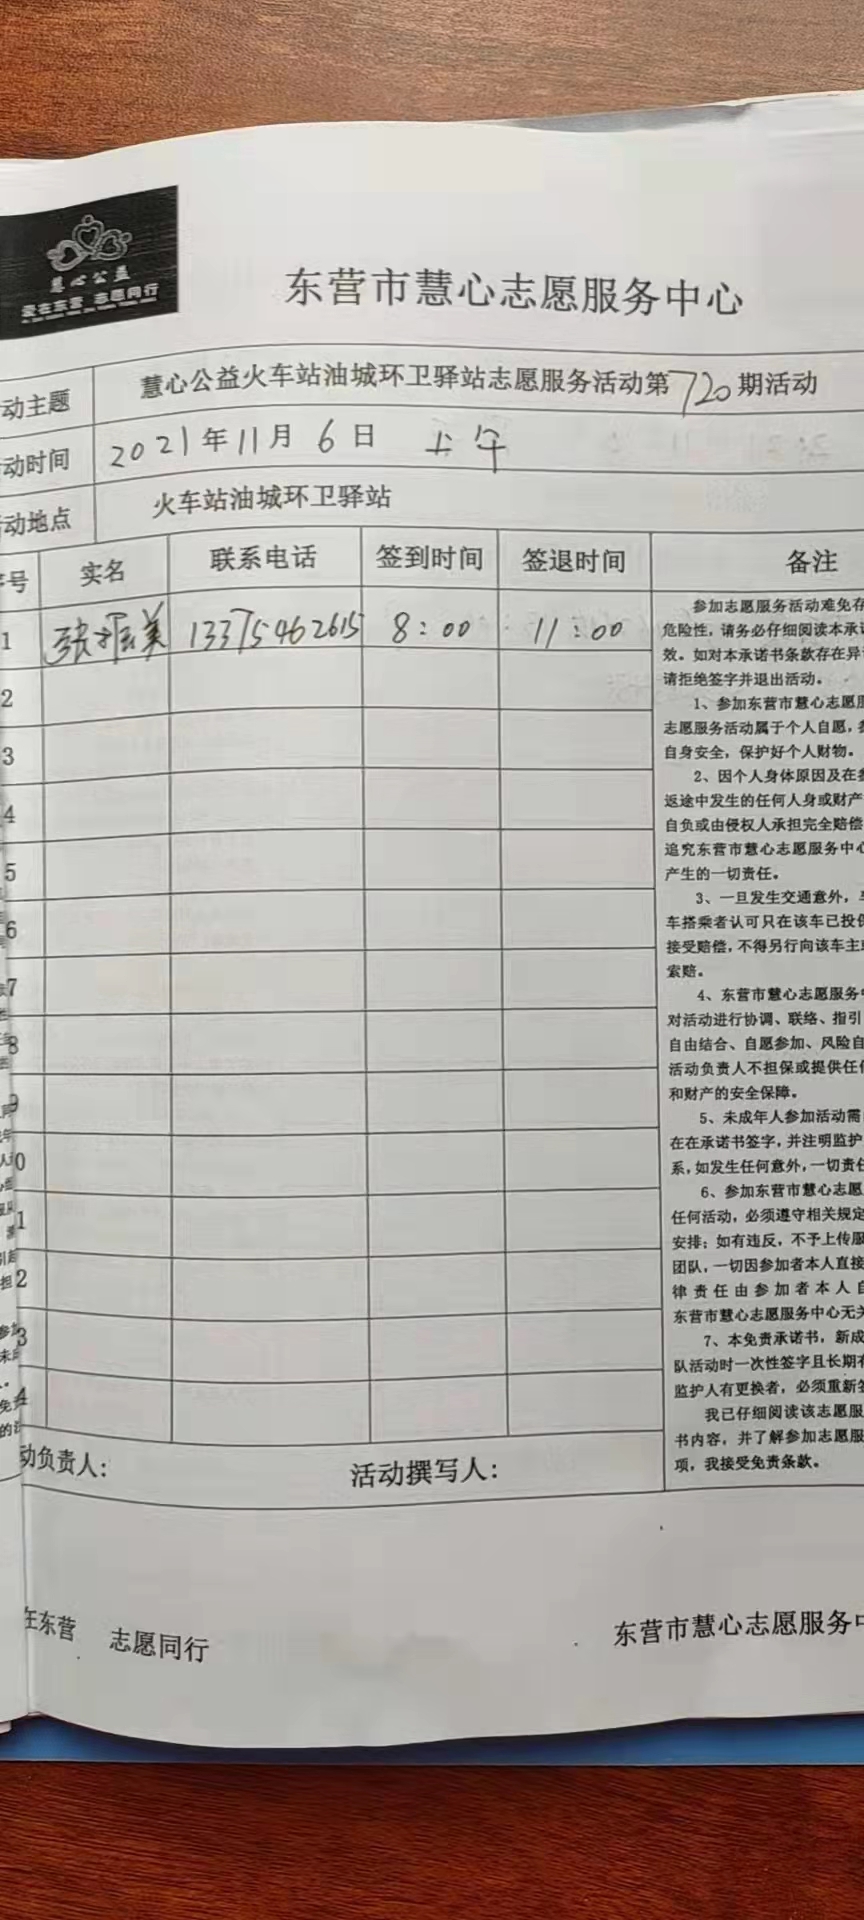 慧心公益
爱在东营 志愿同行
东营市慧心志愿服务中心
动主题 慧心公益火车站油城环卫驿站志愿服务活动第720期活动
动时间 2021年11月6日 上午
动地点 火车站油城环卫驿站
号 实名 联系电话 签到时间 签退时间 备注
1 张 美 13375462615 8:00 11:00
2
3
4
5
6
7
8
9
0
1
2
3
4
参加志愿服务活动难免存
危险性，请务必仔细阅读本承诺
效。如对本承诺书条款存在异
请拒绝签字并退出活动。
1、参加东营市慧心志愿
志愿服务活动属于个人自愿，
自身安全，保护好个人财物。
2、因个人身体原因及在
返途中发生的任何人身或财产
自负或由侵权人承担完全赔偿
追究东营市慧心志愿服务中心
产生的一切责任。
3、一旦发生交通意外，
车搭乘者认可只在该车已投保
接受赔偿，不得另行向该车主
索赔。
4、东营市慧心志愿服务
对活动进行协调、联络、指引
自由结合、自愿参加、风险自
活动负责人不担保或提供任
和财产的安全保障。
5、未成年人参加活动需
在在承诺书签字，并注明监护
系，如发生任何意外，一切责任
6、参加东营市慧心志愿
任何活动，必须遵守相关规定
安排；如有违反，不予上传服
团队，一切因参加者本人直接
律责任由参加者本人自
东营市慧心志愿服务中心无关
7、本免责承诺书，新成
队活动时一次性签字且长期有
监护人有更换者，必须重新签
我已仔细阅读该志愿服
书内容，并了解参加志愿服
项，我接受免责条款。
动负责人： 活动撰写人：
在东营 志愿同行 东营市慧心志愿服务中